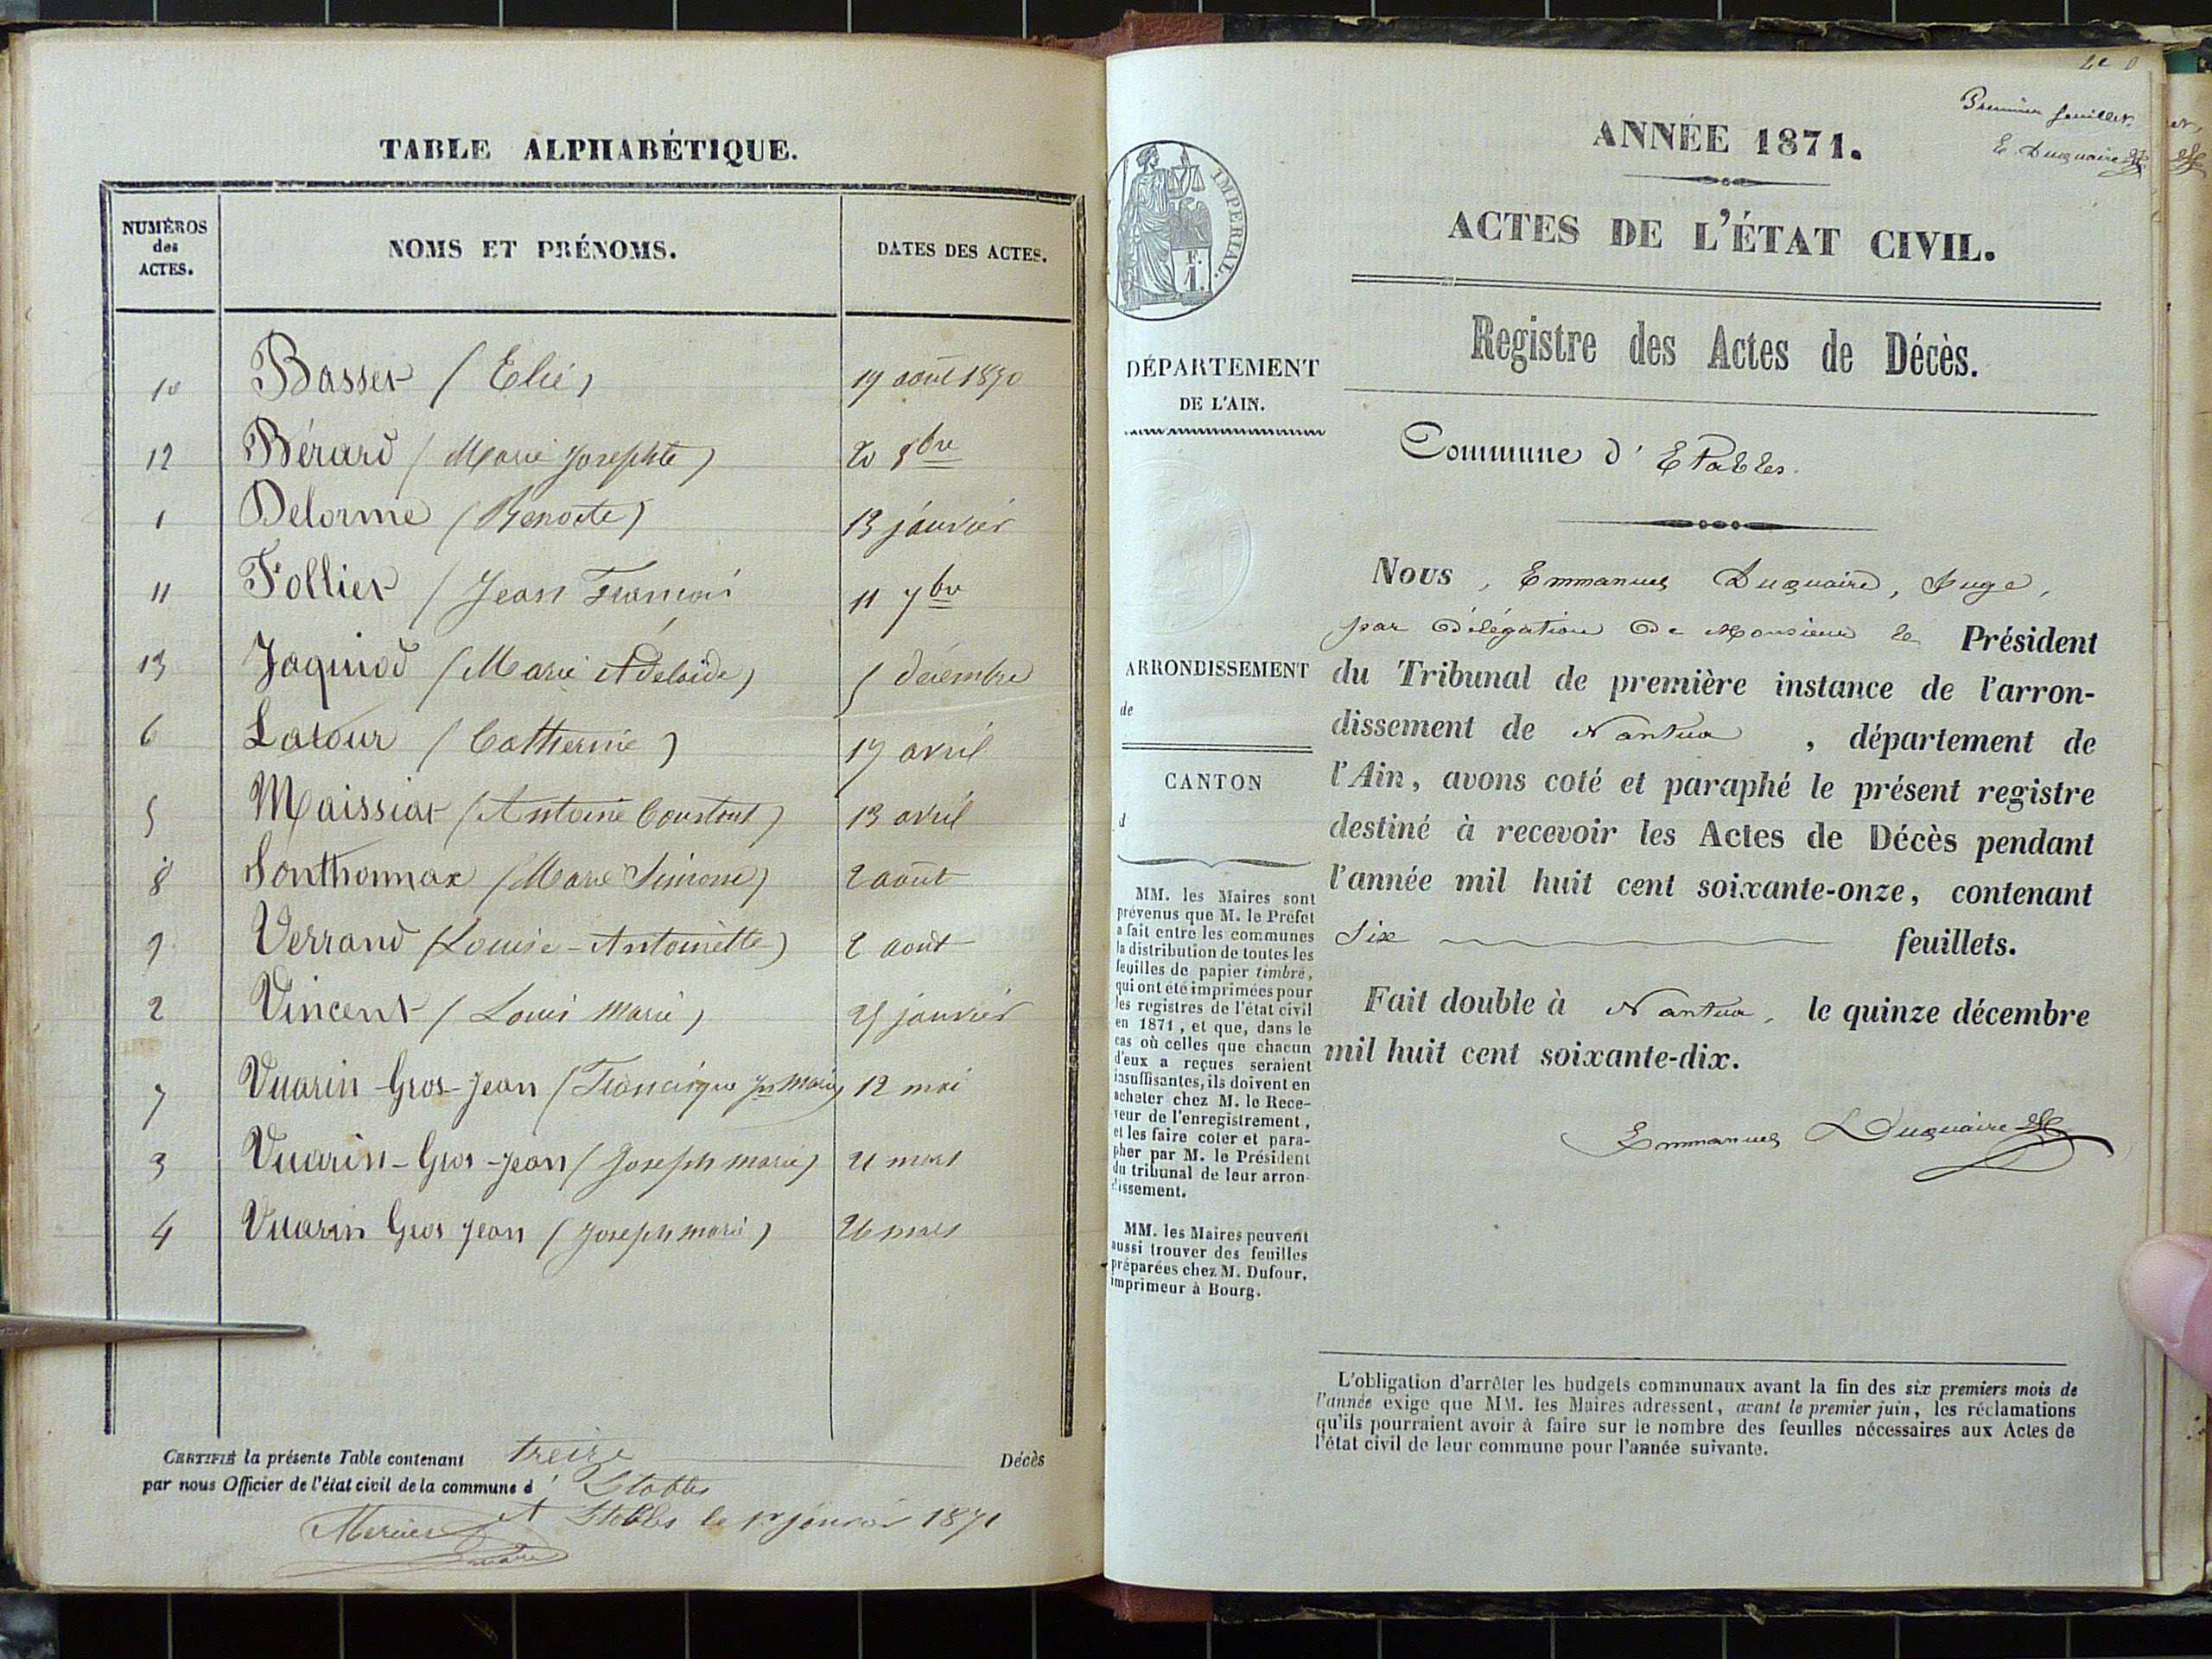 TABLE ALPHABÉTIQUE.
NUMÉROS des ACTES.
NOMS ET PRÉNOMS.
DATES DES ACTES.
10 Basset (Elié) 19 août 1870
12 Bérard (Marie Josephte) 20 8bre
1 Delorme (Benoite) 13 janvier
11 Follier (Jean François 11 7bre
13 Jaquiod (Marie Adelaïde) 5 décembre
6 Latour (Catherine) 17 avril
5 Maissiat (Antoine Constant) 13 avril
8 Sonthonnax (Marie Simone) 2 août
9 Verrand (Louise-Antoinette) 2 août
2 Vincent (Louis Marie) 25 janvier
7 Vuarin-Gros-Jean (Francisque Jh Marie) 12 mai
3 Vuarin-Gros-Jean (Joseph marie) 21 mars
4 Vuarin Gros Jean (Joseph marie) 26 mars
CERTIFIÉ la présente Table contenant treize Décès
par nous Officier de l'état civil de la commune d' Etables
A Etables le 1er janvier 1871
Mercier
maire
Premier feuillet.
E. Duquaire
ANNÉE 1871.
ACTES DE L'ÉTAT CIVIL.
Registre des Actes de Décès.
Commune d' Etables.
Nous, Emmanuel Duquaire, Juge,
par délégation de Monsieur le Président
du Tribunal de première instance de l'arron-
dissement de Nantua, département de
l'Ain, avons coté et paraphé le présent registre
destiné à recevoir les Actes de Décès pendant
l'année mil huit cent soixante-onze, contenant
Six feuillets.
Fait double à Nantua, le quinze décembre
mil huit cent soixante-dix.
Emmanuel Duquaire
IMPERIAL.
F.
1.
DÉPARTEMENT
DE L'AIN.
ARRONDISSEMENT
de
CANTON
d
MM. les Maires sont
prévenus que M. le Préfet
a fait entre les communes
la distribution de toutes les
feuilles de papier timbré,
qui ont été imprimées pour
les registres de l'état civil
en 1871, et que, dans le
cas où celles que chacun
d'eux a reçues seraient
insuffisantes, ils doivent en
acheter chez M. le Rece-
veur de l'enregistrement,
et les faire coter et para-
pher par M. le Président
du tribunal de leur arron-
dissement.
MM. les Maires peuvent
aussi trouver des feuilles
préparées chez M. Dufour,
imprimeur à Bourg.
L'obligation d'arrêter les budgets communaux avant la fin des six premiers mois de
l'année exige que MM. les Maires adressent, avant le premier juin, les réclamations
qu'ils pourraient avoir à faire sur le nombre des feuilles nécessaires aux Actes de
l'état civil de leur commune pour l'année suivante.